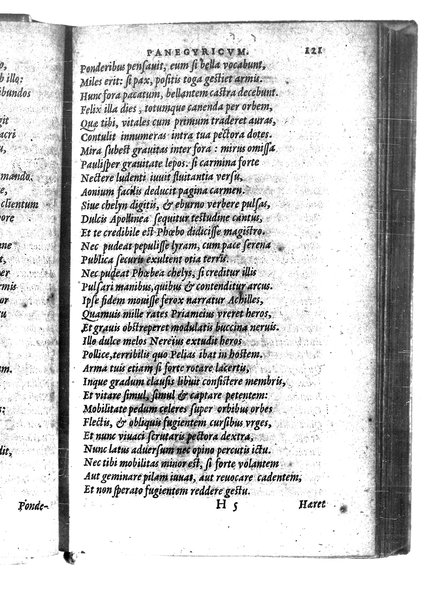 PANEGYRICVM. 121
Ponderibus pensauit, eum si bella vocabunt,
Miles erit: si pax, positis toga gestiet armis.
Hunc fora pacatum, bellantem castra decebunt.
Felix illa dies, totumque canenda per orbem,
Quæ tibi, vitales cum primum traderet auras,
Contulit innumeras intra tua pectora dotes.
Mira subest grauitas inter fora: mirus omissa
Paulisper grauitate lepos. si carmina forte
Nectere ludenti iuuit fluitantia versu,
Aonium facilis deducit pagina carmen.
Siue chelyn digitis, & eburno verbere pulsas,
Dulcis Apollinea sequitur testudine cantus,
Et te credibile est Phœbo didicisse magistro.
Nec pudeat pepulisse lyram, cum pace serena
Publica securis exultent otia terris.
Nec pudeat Phœbea chelys, si creditur illis
Pulsari manibus, quibus & contenditur arcus.
Ipse fidem mouisse ferox narratur Achilles,
Quamuis mille rates Priameius vreret heros,
Et grauis obstreperet modulatis buccina neruis.
Illo dulce melos Nereïus extudit heros
Pollice, terribilis quo Pelias ibat in hostem.
Arma tuis etiam si forte rotare lacertis,
Inque gradum clausis libuit consistere membris,
Et vitare simul, simul & captare petentem:
Mobilitate pedum celeres super orbibus orbes
Flectis, & obliquis fugientem cursibus vrges,
Et nunc viuaci scrutaris pectora dextra,
Nunc latus aduersum nec opino percutis ictu.
Nec tibi mobilitas minor est, si forte volantem
Aut geminare pilam iuuat, aut reuocare cadentem,
Et non sperato fugientem reddere gestu.
H 5 Hæret
o,
b illo:
ibundos
git
acri
mando.
clientum
ore
ne
per
er
s
dit,
Ponde-